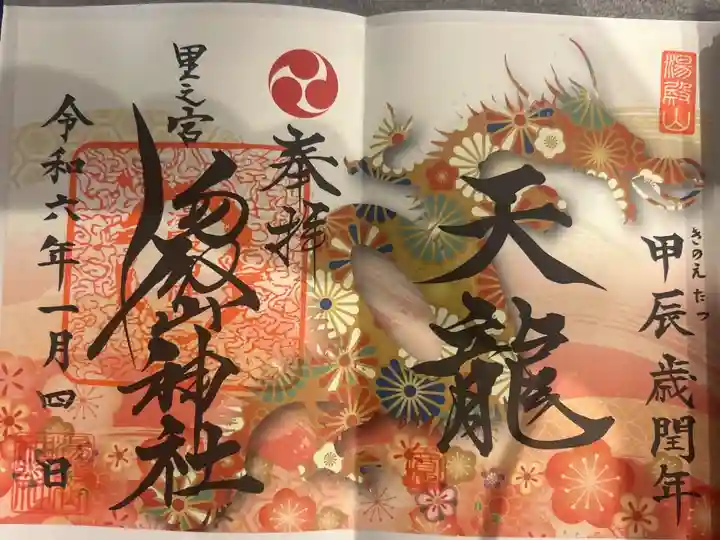 湯殿山
きのえたつ
甲辰歳閏年
天龍
奉拝
里之宮
湯殿山神社
令和六年一月四日